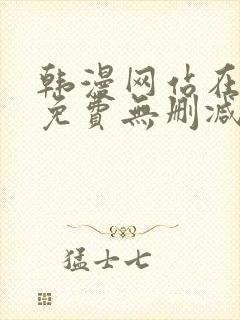 韩漫网站在
免費無删减
猛士七